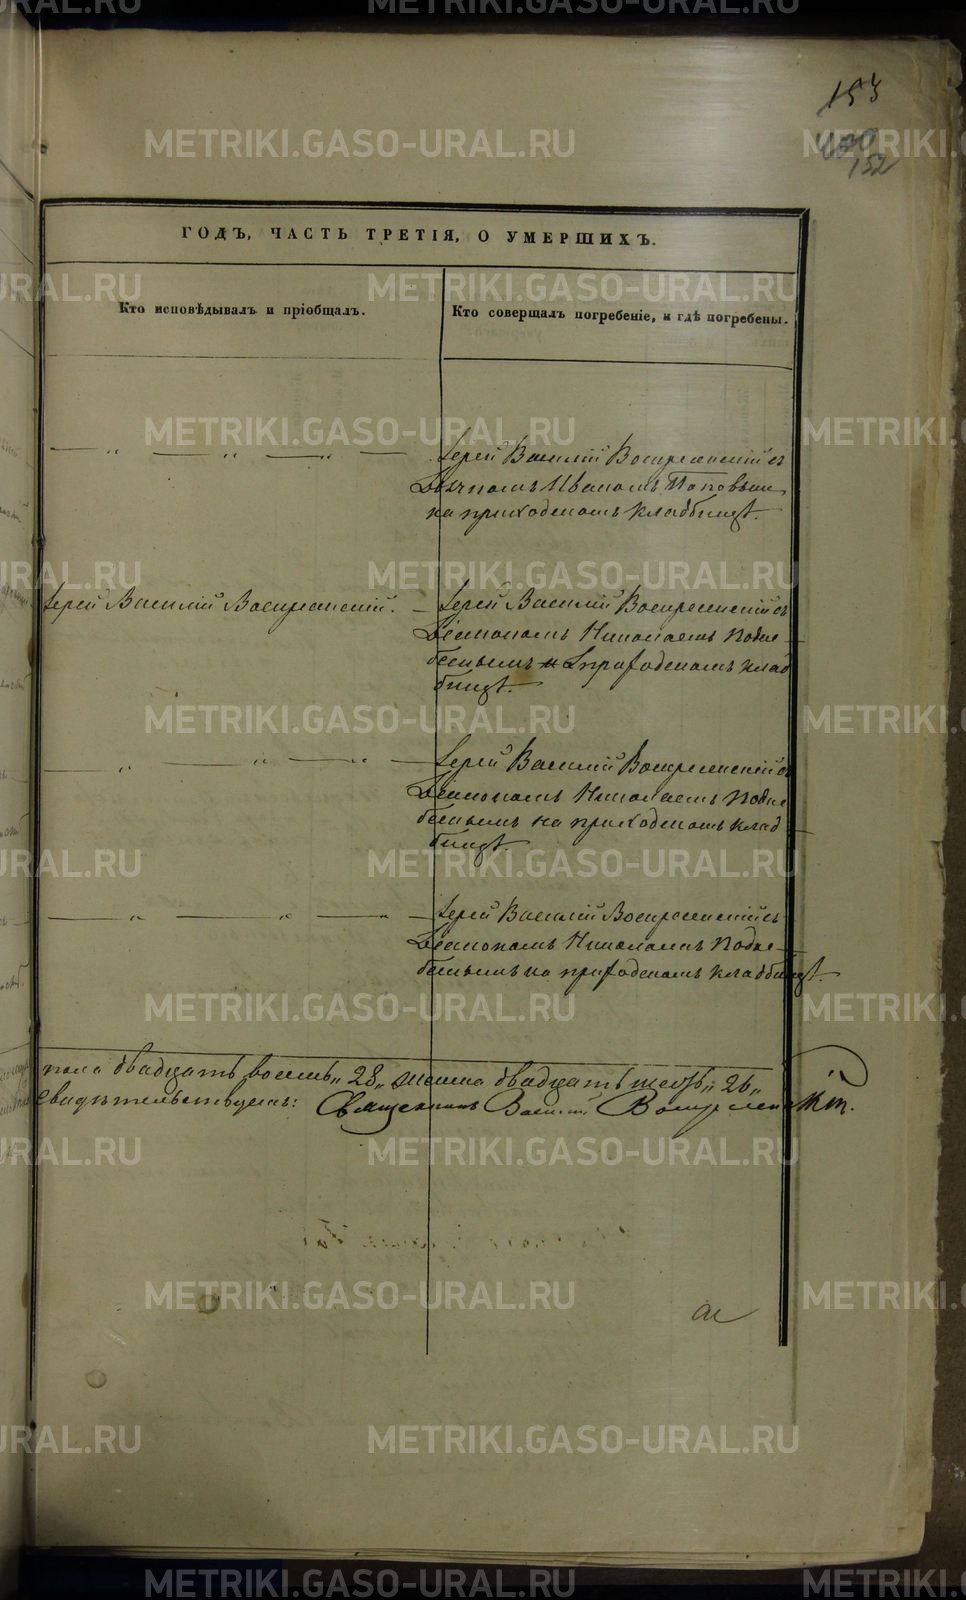 153
400
152
ГОДЪ, ЧАСТЬ ТРЕТІЯ, О УМЕРШИХЪ.
Кто исповѣдывалъ и пріобщалъ.
Кто совершалъ погребеніе, и гдѣ погребены.
— „ — „ — „ —
Іерей Василій Воскресенскій съ
Дьячкомъ Иваномъ Поповымъ
на приходскомъ кладбищѣ.
Іерей Василій Воскресенскій.
— Іерей Василій Воскресенскій съ
Діакономъ Николаемъ
приходскомъ клад
бищѣ.
— „ — „ — „ —
Іерей Василій Воскресенскій съ
Діакономъ Николаемъ
на приходскомъ клад
бищѣ.
— „ — „ — „ —
Іерей Василій Воскресенскій съ
Діакономъ Николаемъ
на приходскомъ кладбищѣ.
пола двадцать восемь „28„ женска двадцать шесть „26„
Свидѣтельствуемъ: Священникъ Василій Воскресенскій.
METRIKI.GASO-URAL.RU